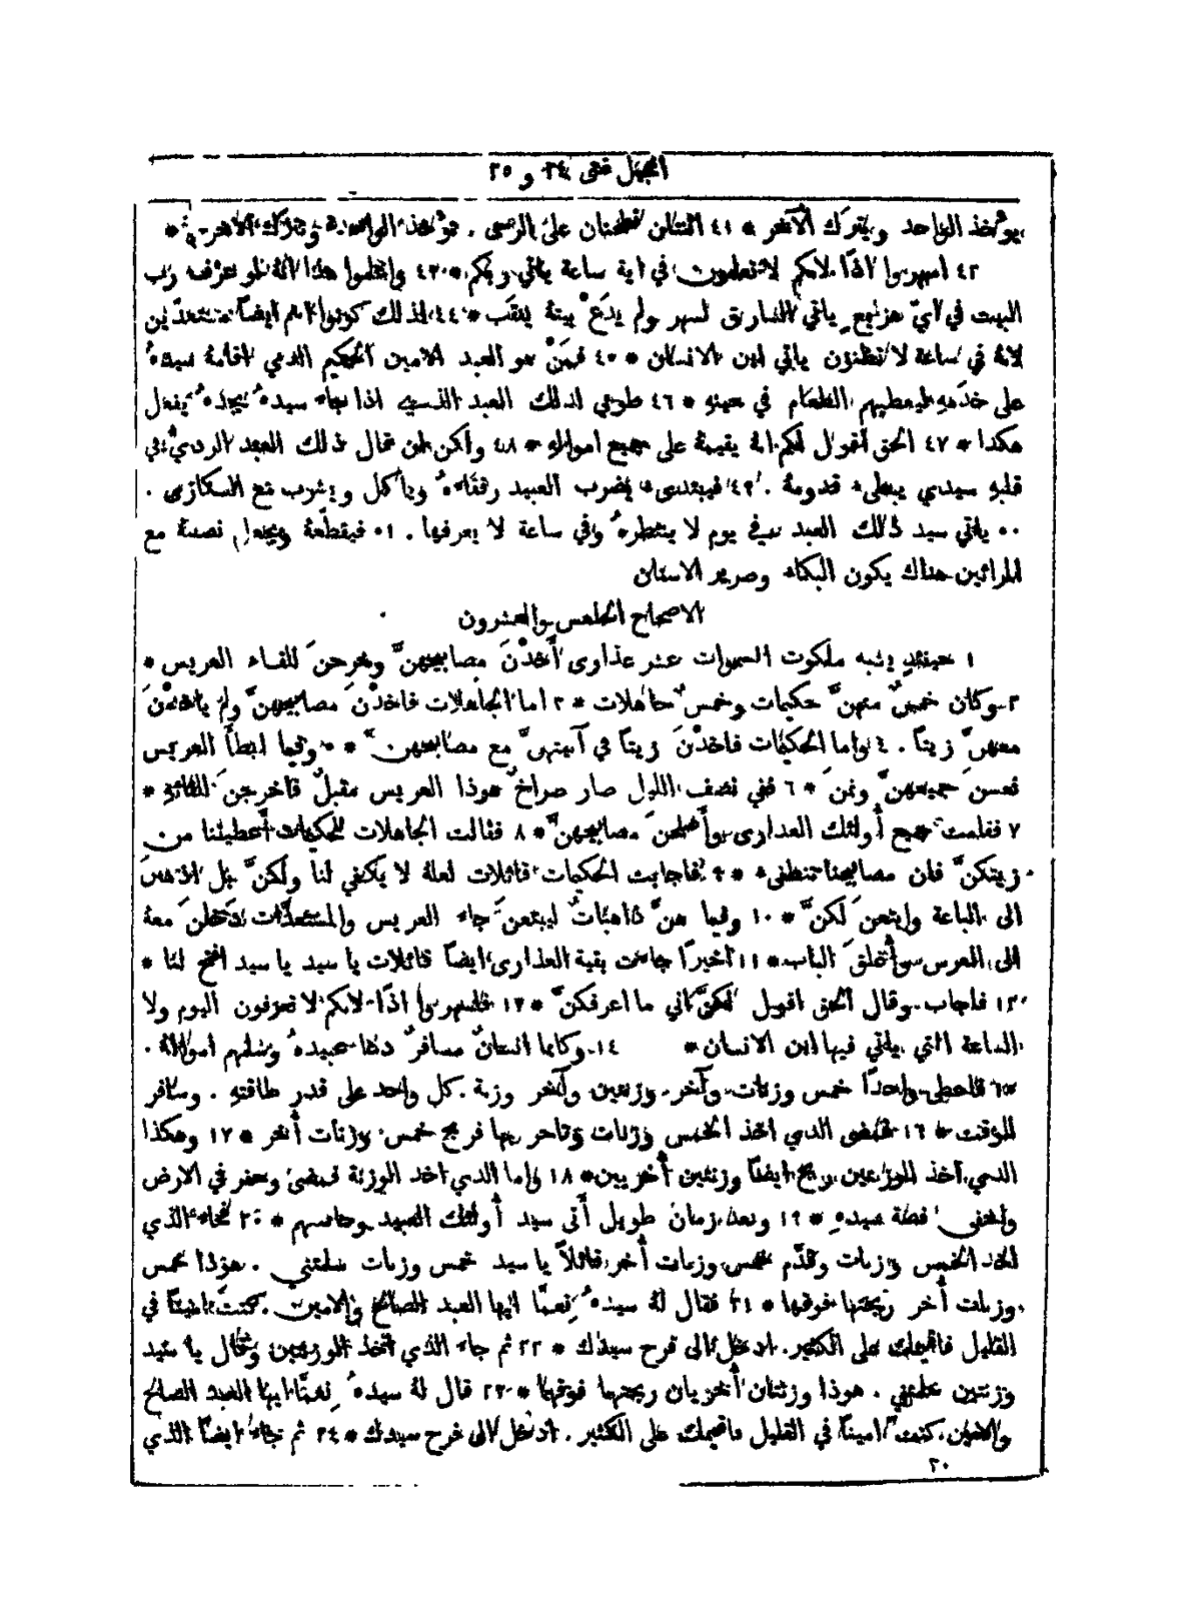 انجيل متى ٢٤ و ٢٥
يوْخذ الواحد ويترك الآخر * ٤١ اثنتان تطحنان على الرحى . توْخذ الواحدة وتترك الاخرى *
٤٢ اسهروا اذًا لانكم لا تعلمون في اية ساعة ياتي ربكم * ٤٣ واعلموا هذا انهُ لو عرف رب
البيت في ايّ هزيع ياتي السارق لسهر ولم يدَعْ بيتهُ ينقَب * ٤٤ لذلك كونوا انتم ايضًا مستعدّين
لانهُ في ساعة لا تظنون ياتي ابن الانسان * ٤٥ فمَنْ هو العبد الامين الحكيم الذي اقامهُ سيدهُ
على خدَمهِ ليعطيهم الطعام في حينهِ * ٤٦ طوبى لذلك العبد الذي اذا جاء سيدهُ يجدهُ يفعل
هكذا * ٤٧ الحق اقول لكم انهُ يقيمهُ على جميع اموالهِ * ٤٨ ولكن ان قال ذلك العبد الرديُّ في
قلبهِ سيدي يبطىء قدومهُ . ٤٩ فيبتدىء يضرب العبيد رفقاءهُ وياكل ويشرب مع السكارى .
٥٠ ياتي سيد ذلك العبد في يوم لا ينتظرهُ وفي ساعة لا يعرفها . ٥١ فيقطّعهُ ويجعل نصيبهُ مع
المرائين هناك يكون البكاء وصرير الاسنان
الاصحاح الخامس والعشرون
١ حينئذٍ يشبه ملكوت السموات عشر عذارى أَخذْنَ مصابيحهنَّ وخرجنَ للقاء العريس *
٢ وكان خمسٌ منهنَّ حكيمات وخمسٌ جاهلات * ٣ اما الجاهلات فاخذْنَ مصابيحهنَّ ولم ياخذْنَ
معهنَّ زيتًا . ٤ واما الحكيمات فاخذْنَ زيتًا في آنيتهنَّ مع مصابيحهنَّ * ٥ وفيما ابطأَ العريس
نعسنَ جميعهنَّ ونمنَ * ٦ ففي نصف الليل صار صراخٌ هوذا العريس مقبلٌ فاخرجنَ للقائهِ *
٧ فقامت جميع أُولئك العذارى وأَصلحنَ مصابيحهنَّ * ٨ فقالت الجاهلات للحكيمات أَعطيننا من
زيتكنَّ فان مصابيحنا تنطفىء * ٩ فاجابت الحكيمات قائلات لعلهُ لا يكفي لنا ولكنَّ بل اذهبنَ
الى الباعة وابتعنَ لكنَّ * ١٠ وفيما هنَّ ذاهبات ليبتعنَ جاء العريس والمستعدَّات دخلنَ معهُ
الى العرس وأُغلقَ الباب * ١١ اخيرًا جاءت بقية العذارى ايضًا قائلات يا سيد يا سيد افتح لنا *
١٢ فاجاب وقال الحق اقول لكنَّ اني ما اعرفكنَّ * ١٣ فاسهروا اذًا لانكم لا تعرفون اليوم ولا
الساعة التي ياتي فيها ابن الانسان * ١٤ وكانما انسانٌ مسافرٌ دعا عبيدهُ وسلمهم اموالهُ .
١٥ فاعطى واحدًا خمس وزنات وآخر وزنتين وآخر وزنة . كل واحد على قدر طاقتهِ . وسافر
للوقت * ١٦ فمضى الذي اخذ الخمس وزنات وتاجر بها فربح خمس وزنات أُخر * ١٧ وهكذا
الذي اخذ الوزنتين ربح ايضًا وزنتين أُخريين * ١٨ واما الذي اخذ الوزنة فمضى وحفر في الارض
واخفى فضة سيدهِ * ١٩ وبعد زمان طويل أَتى سيد أُولئك العبيد وحاسبهم * ٢٠ فجاء الذي
اخذ الخمس وزنات وقدَّم خمس وزنات أُخر قائلًا يا سيد خمس وزنات سلمتني . هوذا خمس
وزنات أُخر ربحتها فوقها * ٢١ فقال لهُ سيدهُ نِعمَّا ايها العبد الصالح والامين . كنتَ امينًا في
القليل فاقيمك على الكثير . ادخل الى فرح سيدك * ٢٢ ثم جاء الذي اخذ الوزنتين وقال يا سيد
وزنتين سلمتني . هوذا وزنتان أُخريان ربحتهما فوقهما * ٢٣ قال لهُ سيدهُ نِعمَّا ايها العبد الصالح
والامين . كنتَ امينًا في القليل فاقيمك على الكثير . ادخل الى فرح سيدك * ٢٤ ثم جاء ايضًا الذي
٣٠